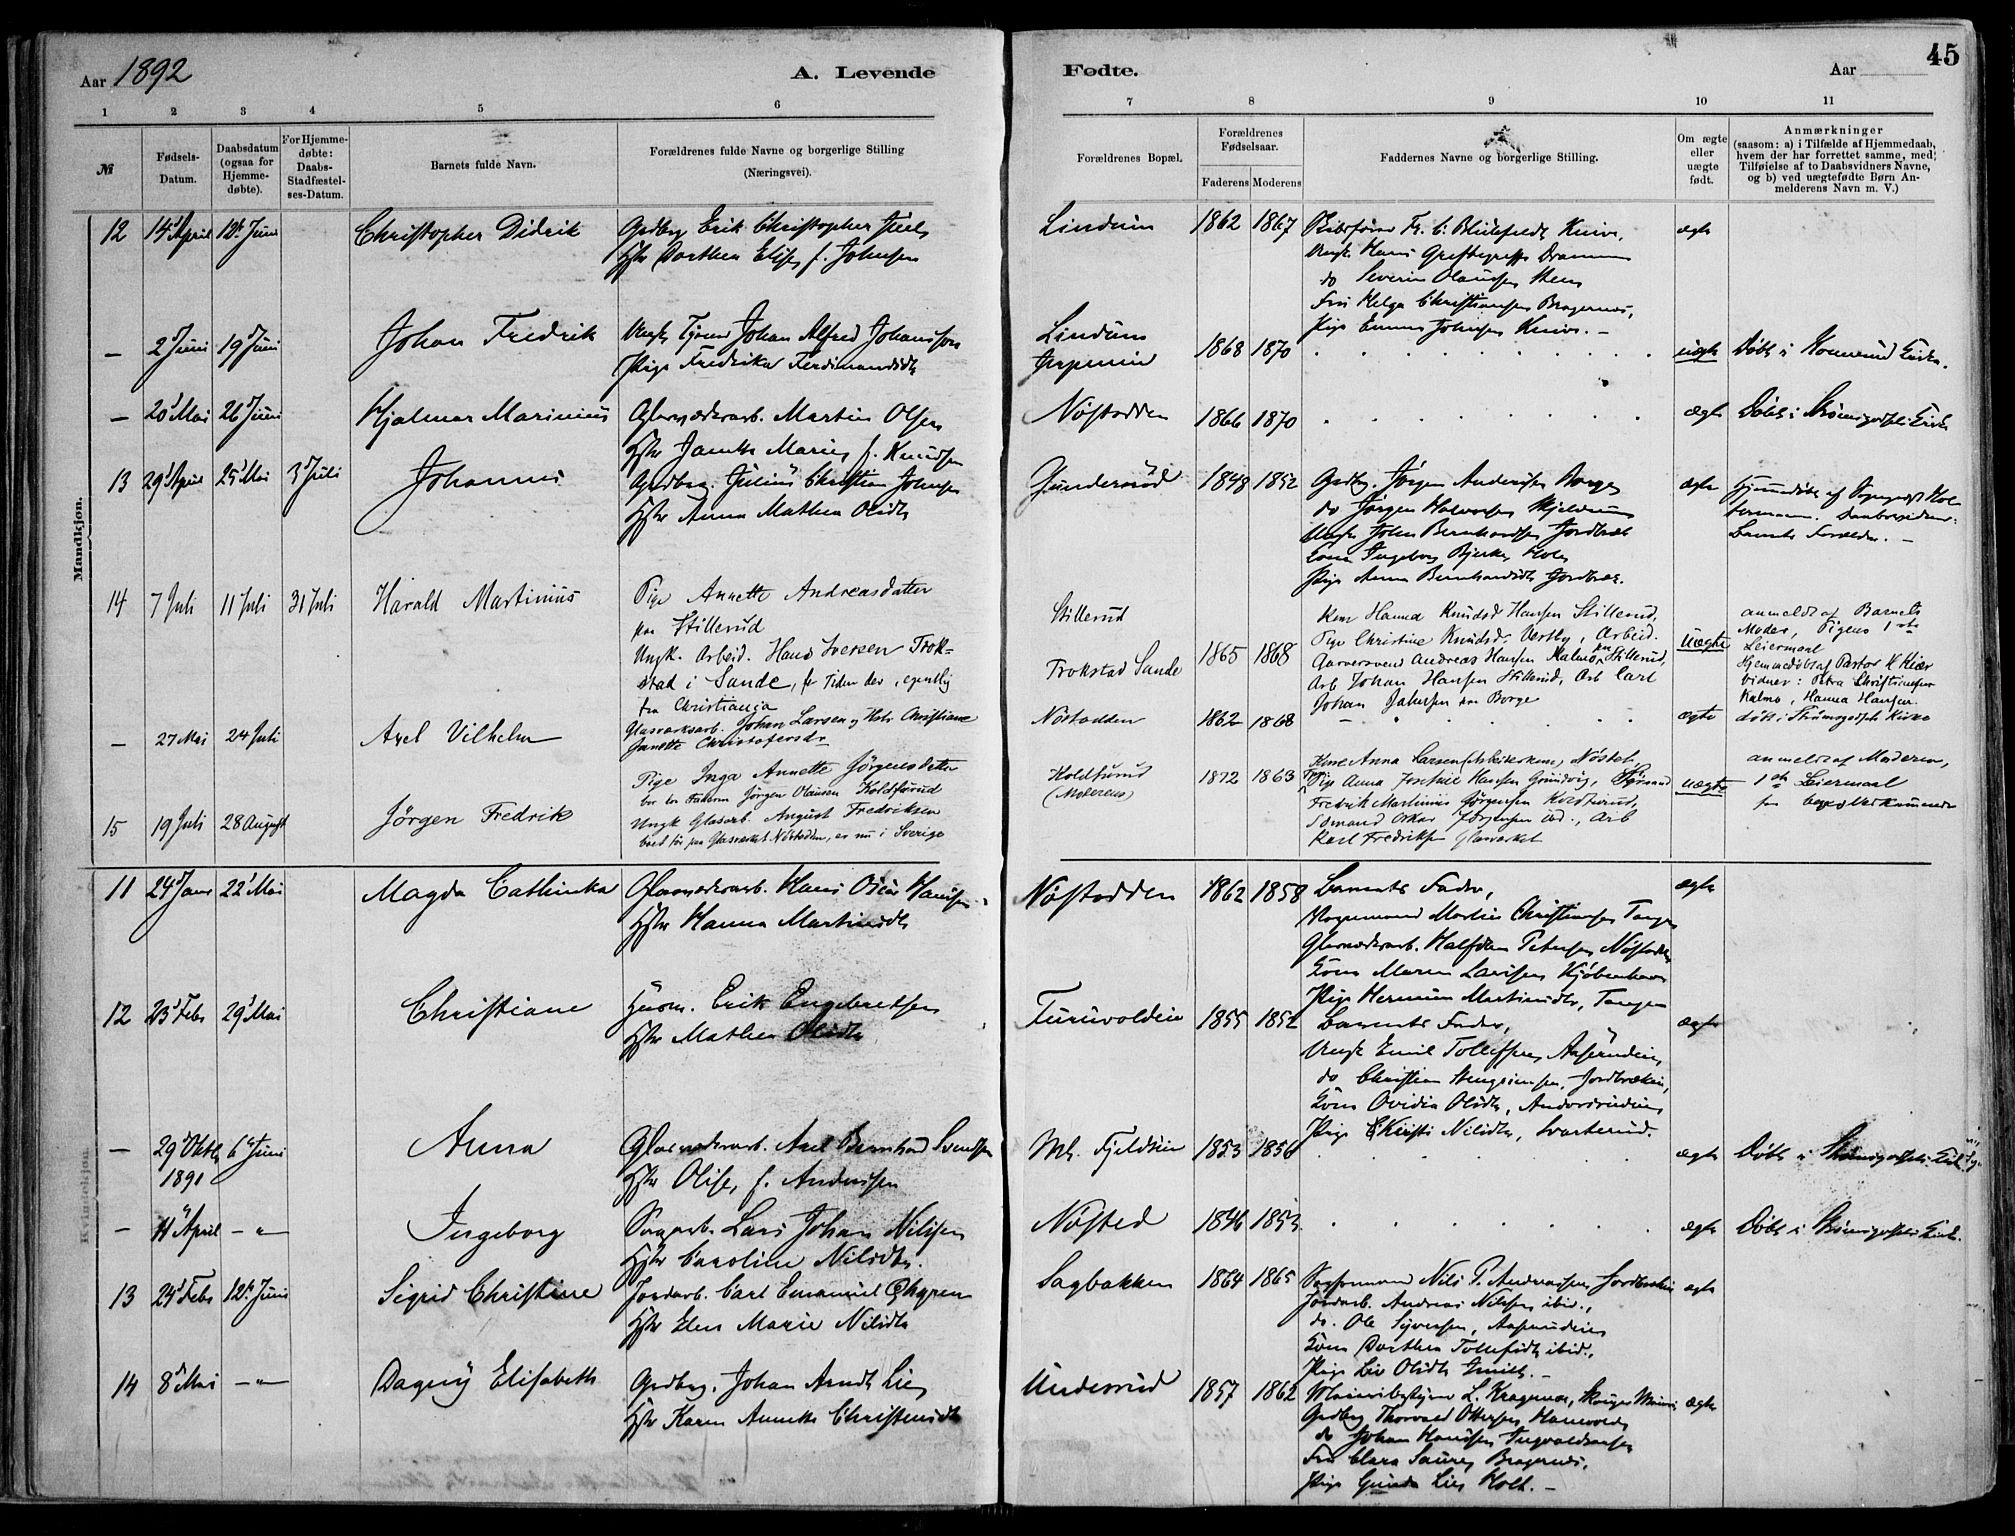 Aar 1892
A. Levende
Fødte.
Aar
45
1 2 3 4 5 6 7 8 9 10 11
№
Fødsels-
Datum.
Daabsdatum
(ogsaa for
Hjemme-
døbte).
For Hjemme-
døbte:
Daabs-
Stadfæstel-
ses-Datum.
Barnets fulde Navn.
Forældrenes fulde Navne og borgerlige Stilling
(Næringsvei).
Forældrenes Bopæl.
Forældrenes
Fødselsaar.
Faderens Moderens
Faddernes Navne og borgerlige Stilling.
Om ægte
eller
uægte
født.
Anmærkninger
(saasom: a) i Tilfælde af Hjemmedaab,
hvem der har forrettet samme, med
Tilføielse af to Daabsvidners Navne,
og b) ved uægtefødte Børn An-
melderens Navn m. V.)
Mandkjøn.
12 14 April 12 Juni Christopher Didrik
Grdbr. Erik Christopher Juel
Hstr Dorthea Elise f. Johnsen
Lindum 1862 1867
Fr. C. Blichfeldt Knive,
Ungk. Hans Drammen
do Severin Olaussen Steen
Frøk. Helga Christiansen Bragernes,
Pige Emma Johnsen Knive. –
ægte
– 2 Juni 19 Juni Johan Fredrik
Ungk. Johan Alfred Johansson
Pige Fredrika Ferdinandsdtr
Lindum
1868 1870
uægte Døbt i Konnerud Kirke.
– 20 Mai 26 Juni Hjalmar Marinius
Glasværksarb. Martin Olsen
Hstr Janette Marie f. Knudsen
Nøstodden 1866 1870
ægte Døbt i Strømsgodsets Kirke
13 29 April 25 Mai 3 Juli Johannes
Grdbr. Julius Christian Johnsen
Hstr Anna Mathea Olsdtr
Gunderud 1848 1852
Grdbr. Jørgen Andersen Borge
do Jørgen Halvorsen Skjeldrum
Ungk. John Bernhardsen Jordbræk
Kone Ingeborg Bjerke Hole
Pige Anna Bernhardsdtr Jordbræk.
ægte
Barnets Forældre. –
14 7 Juli 11 Juli 31 Juli Harald Martinius
Pige Annette Andreasdatter
paa Stillerud
Ungk. Arbeid. Hans Iversen Trok-
stad i Sande, for Tiden der, egentlig
fra Christiania
Stillerud
Trokstad Sande
1865 1868
Kone Hanna Knudsd. Hansen Stillerud,
Pige Christine Knudsd. Værtby, Arbeid.
Garversvend Andreas Hansen Kalmo Stillerud,
Arb Johan Hansen Stillerud, Arb Carl
Johan Jakobsen paa Borge
Uægte
anmeldt af Barnets
Moder, Pigens 1ste
Leiermaal
Hjemmedøbt af Pastor K Kiær
Vidner: Petra Christiansen
Kalmo, Hanna Hansen
– 27 Mai 24 Juli Axel Vilhelm
Glasværksarb. Johan Larsen og Hstr. Christiane
Janette Christofersdr
Nøstodden 1862 1868
ægte døbt i Strømsgodsets Kirke
15 19 Juli 28 August Jørgen Fredrik
Pige Inga Annette Jørgensdatter
bor hos Faderen Jørgen Olausen Koldfurud
Ungk Glasarb. August Fredriksen
boed før paa Glasværket Nøstodden, er nu i Sverige
Koldfurud
(Moderens)
1872 1863
Kone Anna Larsen, Nøstet
Pige Anna Josefine Hansen Grundvig, Styrmand
Fredrik Martinius Jørgensen Koldfurud,
Sømand Oskar Jørgensen ibd., Arb
Karl Fredriksen Glasværket
uægte
anmeldt af Moderen,
1ste Leiermaal
for begge Vedkommende
Kvindekjøn.
11 24 Janr 22 Mai Magda Cathinka
Glasværksarb. Hans Oskar Hansen
Hstr Hanna Martinsdtr
Nøstodden 1862 1858
Barnets Fader,
Vognmand Martin Christiansen Tangen
Glasværksarb. Halfdan Petersen Nøstodden
Kone Maren Larsen Kjøbenhavn
Pige Hermine Martinsdtr, Tangen
ægte
12 23 Febr 29 Mai Christiane
Husm. Erik Engebretsen
Hstr Mathea Olsdtr
Furuvolden 1855 1852
Barnets Fader,
Ungk Emil Tollefsen Aaserudeie,
do Christian Jordbrækeie,
Kone Ovidia Olsdtr,
Pige Kirsti Nilsdtr, Svarterud.
ægte
– 29 Oktbr 6 Juni Anna
1891
Glasværksarb. Axel Bernhard Svendsen
Hstr Olise, f. Andersen
Ml. Fjeldeie 1853 1856
ægte Døbt i Strømsgodsets Kirke
– 11 April –"– Ingeborg
Sagarb. Lars Johan Nilsen
Hstr Caroline Nilsdtr.
Nøsted 1846 1853
ægte Døbt i Strømsgodsets Kirke.
13 24 Febr 12 Juni Sigrid Christine
Jordarb. Carl Emanuel
Hstr Elen Marie Nilsdtr
Sagbakken 1864 1865
Sagformand Nils P. Andreassen Jordbrækeie
Jordarb. Andreas Nilsen ibid.,
do. Ole Syversen, Aaserudeie
Kone Dorthea Tollefsdtr ibid.,
Pige Liv Olsdtr
ægte
14 8 Mai –"– Dagny Elisabeth
Grdbr. Johan Arndt Lie
Hstr Karen Annette Christensdtr
Underrud 1857 1862
Meieribestyrer L. Kragerud, Skouger Meieri
Grdbr Thorvald Ottersen, Hanevold
do Johan Hansen
Frk Clara Saure Bragernes,
Pige Gunda Lie Holt. –
ægte